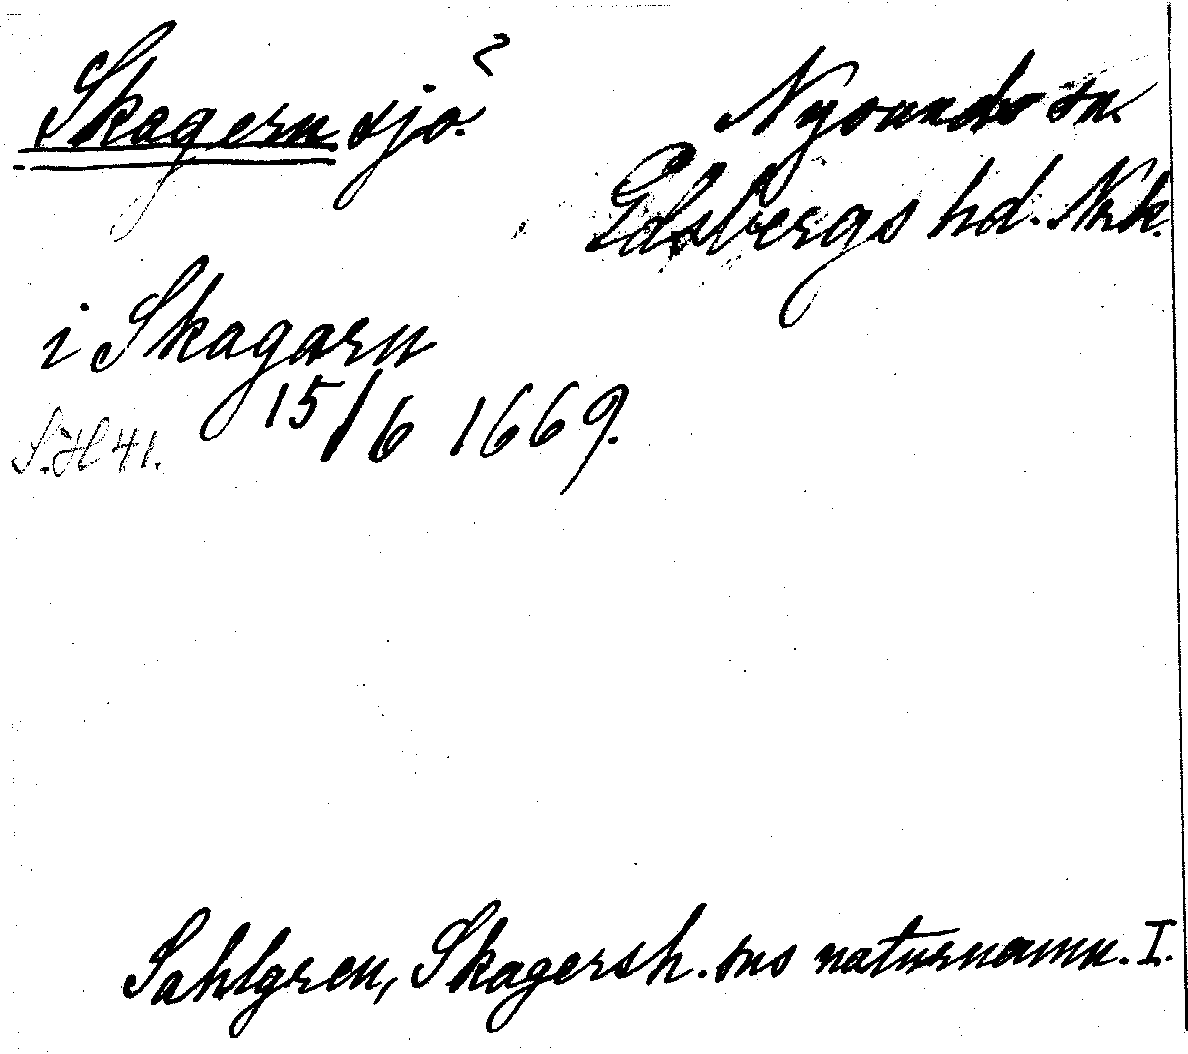 Skagern sjö. ?
Nysunds sn.
Edsbergs hd. Nrk.
i Skagarn
15/6 1669.
S.H 41.
Sahlgren, Skagersh. sns naturnamn. I.